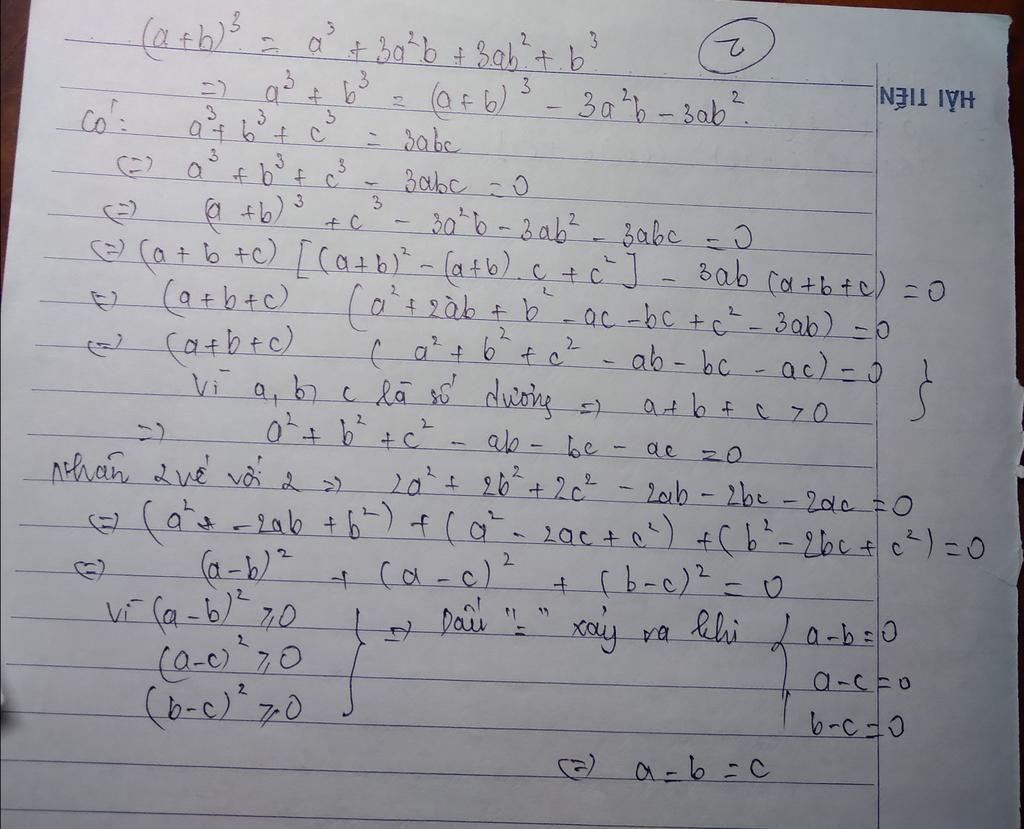 (a+b)³ = a³ + 3a²b + 3ab² + b³
2
⇒ a³ + b³ = (a+b)³ - 3a²b - 3ab².
HẢI TIẾN
Có: a³ + b³ + c³ = 3abc
⇔ a³ + b³ + c³ - 3abc = 0
⇔ (a+b)³ + c³ - 3a²b - 3ab² - 3abc = 0
⇔ (a+b+c) [(a+b)² - (a+b).c + c²] - 3ab (a+b+c) = 0
⇔ (a+b+c) (a² + 2ab + b² - ac - bc + c² - 3ab) = 0
⇔ (a+b+c) (a² + b² + c² - ab - bc - ac) = 0 }
Vì a, b, c là số dương ⇒ a+b+c > 0
⇒ a² + b² + c² - ab - bc - ac = 0
Nhân 2 vế với 2 ⇒ 2a² + 2b² + 2c² - 2ab - 2bc - 2ac = 0
⇔ (a² + - 2ab + b²) + (a² - 2ac + c²) + (b² - 2bc + c²) = 0
⇔ (a-b)² + (a-c)² + (b-c)² = 0
Vì (a-b)² ≥ 0 } ⇒ Dấu "=" xảy ra khi { a-b=0
(a-c)² ≥ 0 a-c=0
(b-c)² ≥ 0 b-c=0
⇔ a=b=c